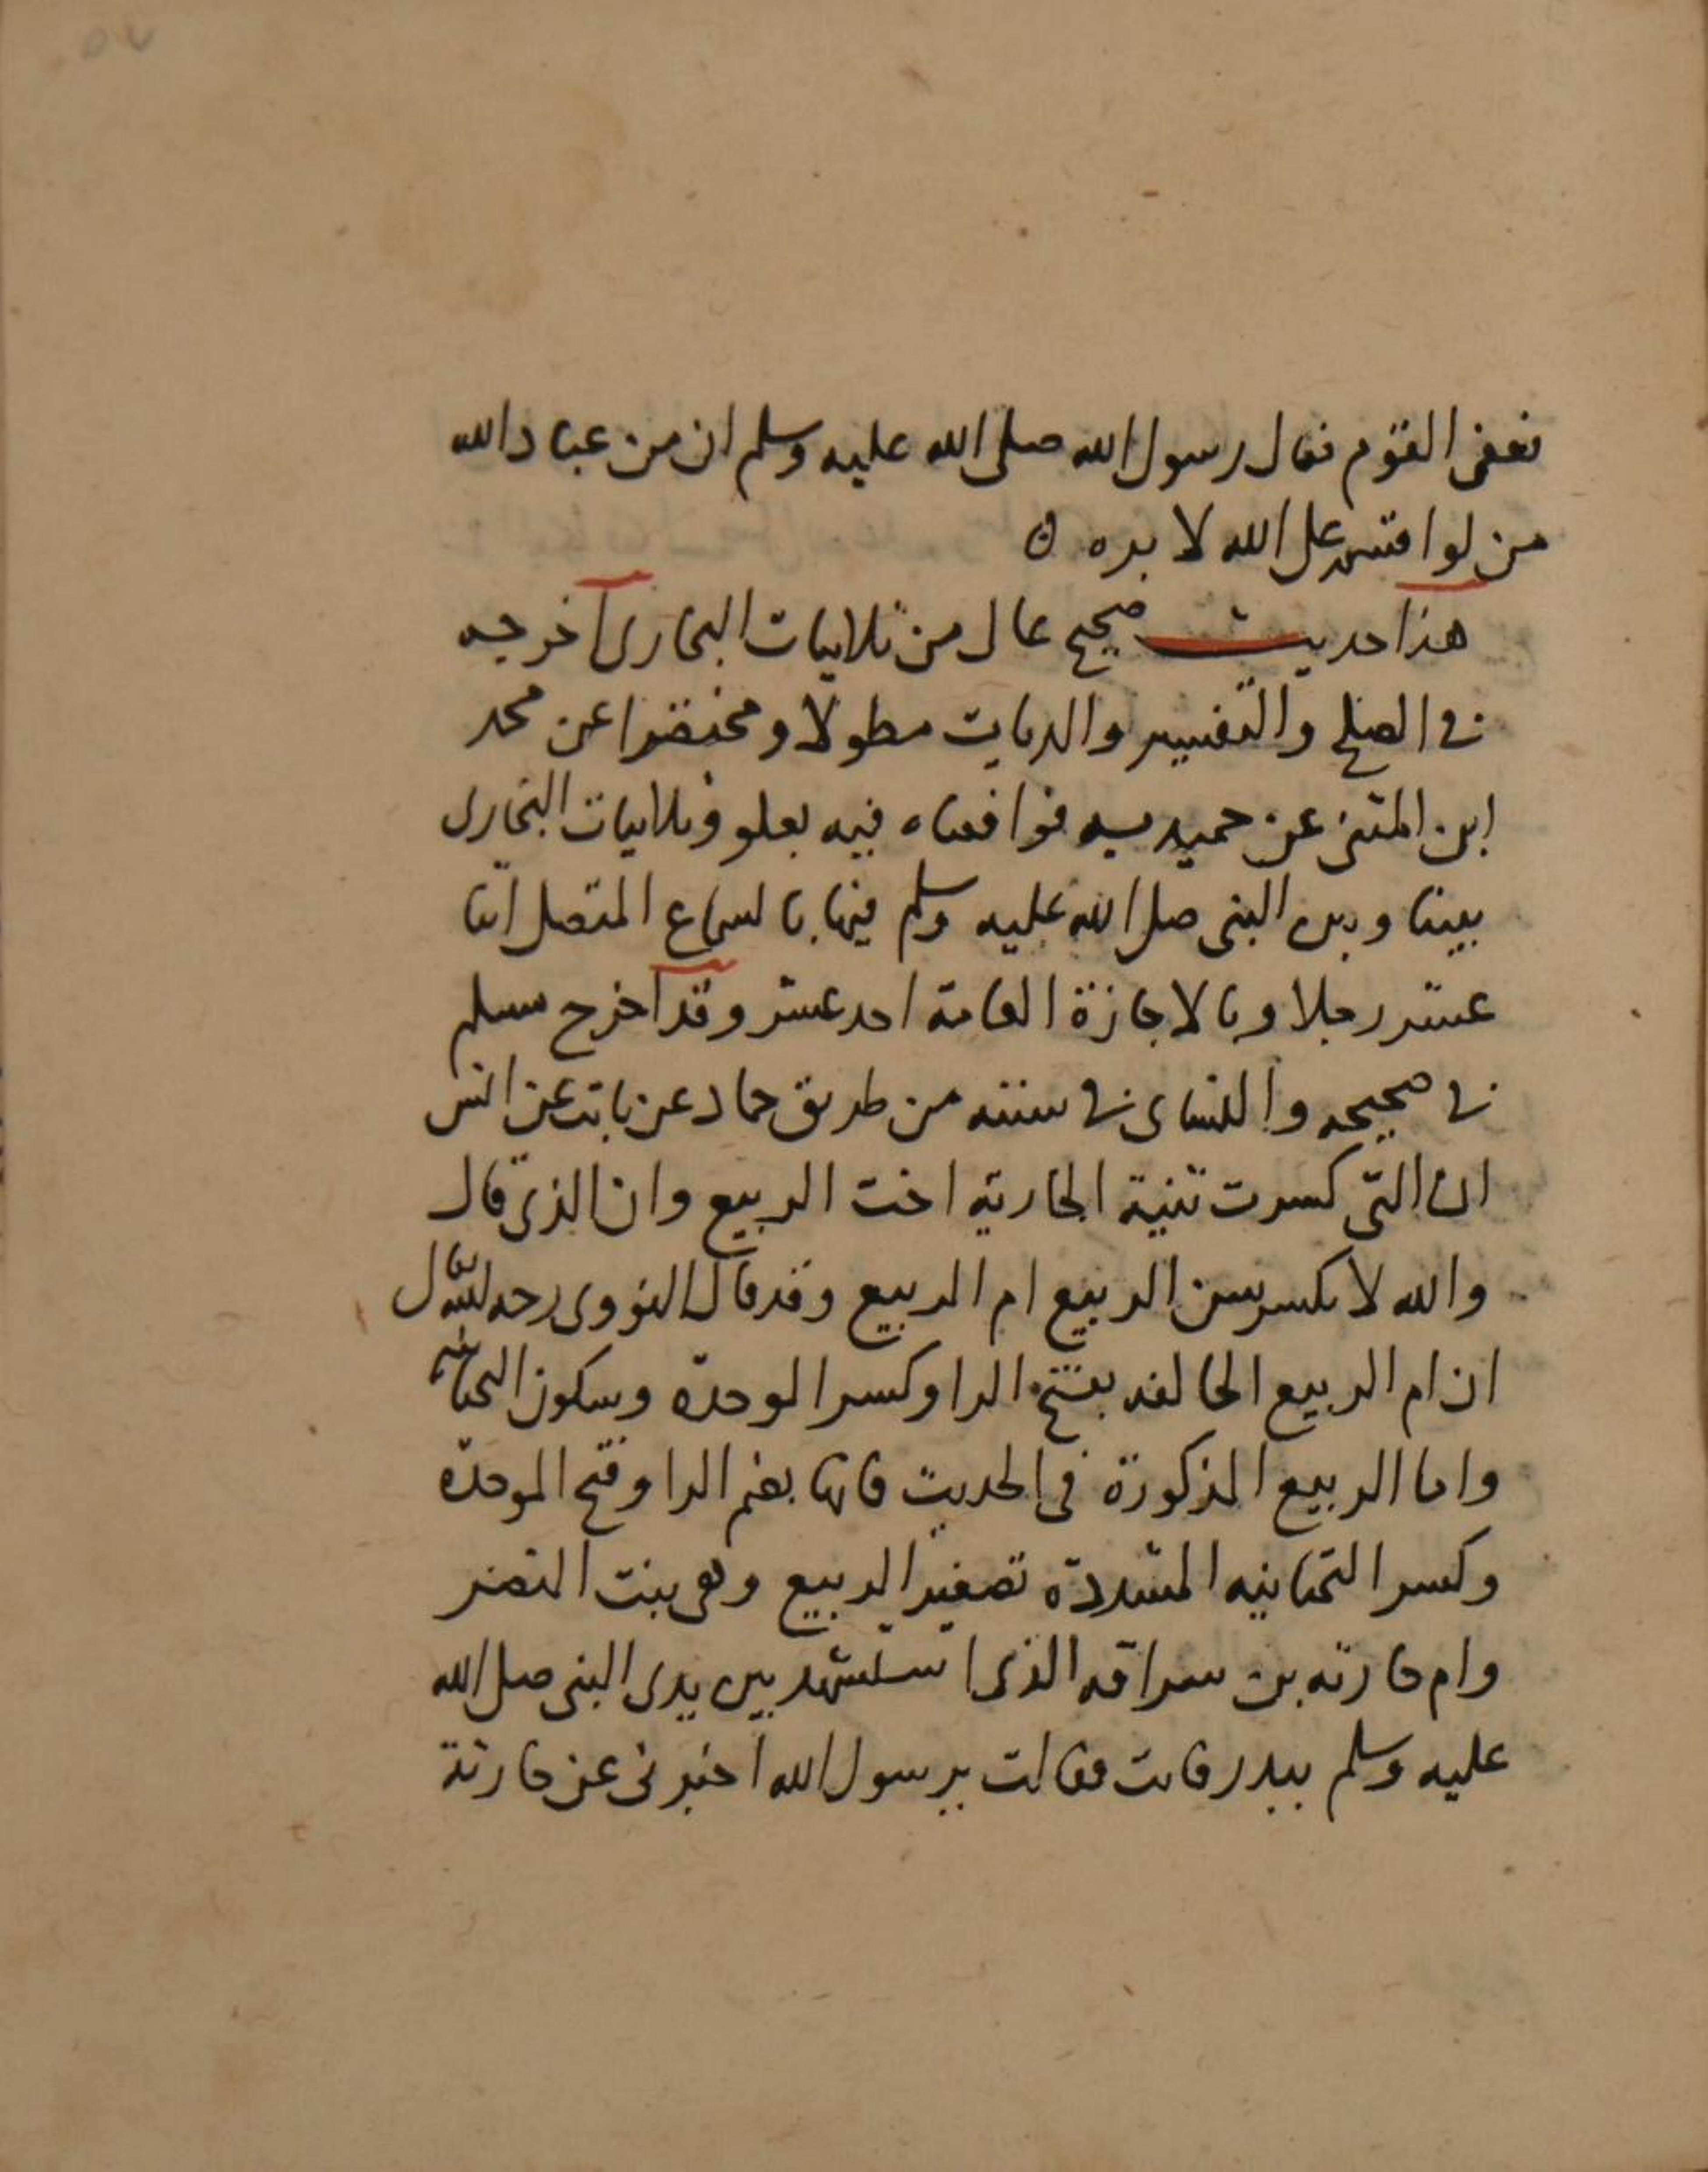 ٥٧
فعفى القوم فقال رسول الله صلى الله عليه وسلم ان من عباد الله
من لو اقسم على الله لا بره ٥
هذا حديث صحيح عال من ثلاثيات البخارى أخرجه
فى الصلح والتفسير والديات مطولا ومختصرا عن محمد
ابن المثنى عن حميد به فوافقناه فيه بعلو وثلاثيات البخارى
بيننا وبين النبى صلى الله عليه وسلم فيها بالسماع المتصل اثنا
عشر رجلا وبالاجازة العامة احد عشر وقد اخرج مسلم
فى صحيحه والنساى فى سننه من طريق حماد عن ثابت عن انس
ان التى كسرت ثنية الجارية اخت الربيع وان الذى قال
والله لا يكسر سن الربيع ام الربيع وقد قال النووى رحمه الله
ان ام الربيع الحالفه بفتح الرا وكسر الموحدة وسكون التحتانيه
واما الربيع المذكورة فى الحديث فانها بضم الرا وفتح الموحدة
وكسر التحتانيه المشددة تصغير الربيع وهى بنت النضر
وام حارثه بن سراقه الذى استشهد بين يدى النبى صلى الله
عليه وسلم ببدر فاتت فقالت يرسول الله اخبرنى عن حارثة